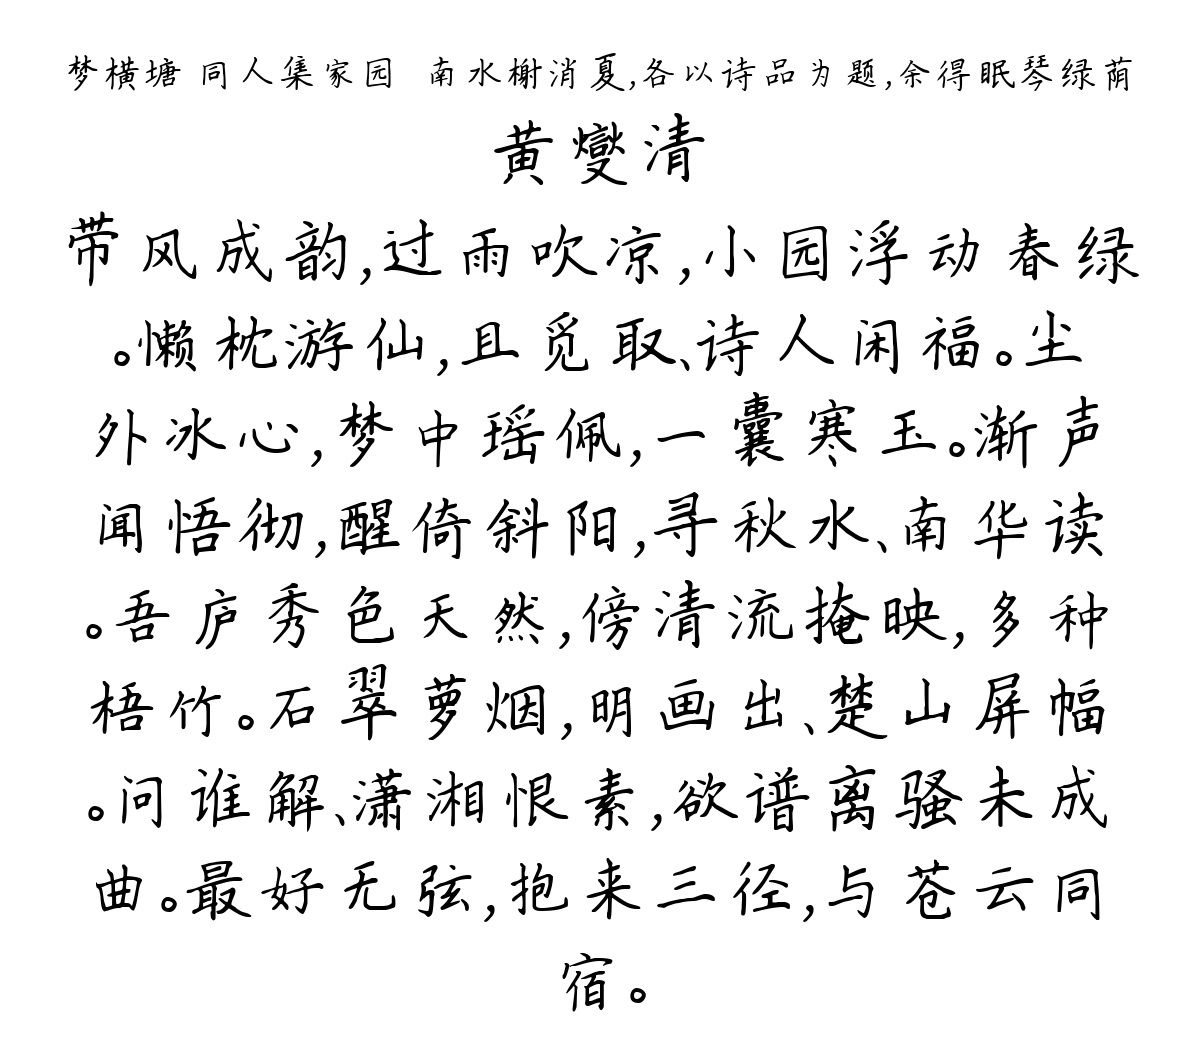 梦横塘 同人集家园 南水榭消夏,各以诗品为题,余得眠琴绿荫
黄燮清
带风成韵,过雨吹凉,小园浮动春绿
。懒枕游仙,且觅取、诗人闲福。尘
外冰心,梦中瑶佩,一囊寒玉。渐声
闻悟彻,醒倚斜阳,寻秋水、南华读
。吾庐秀色天然,傍清流掩映,多种
梧竹。石翠萝烟,明画出、楚山屏幅
。问谁解、潇湘恨素,欲谱离骚未成
曲。最好无弦,抱来三径,与苍云同
宿。